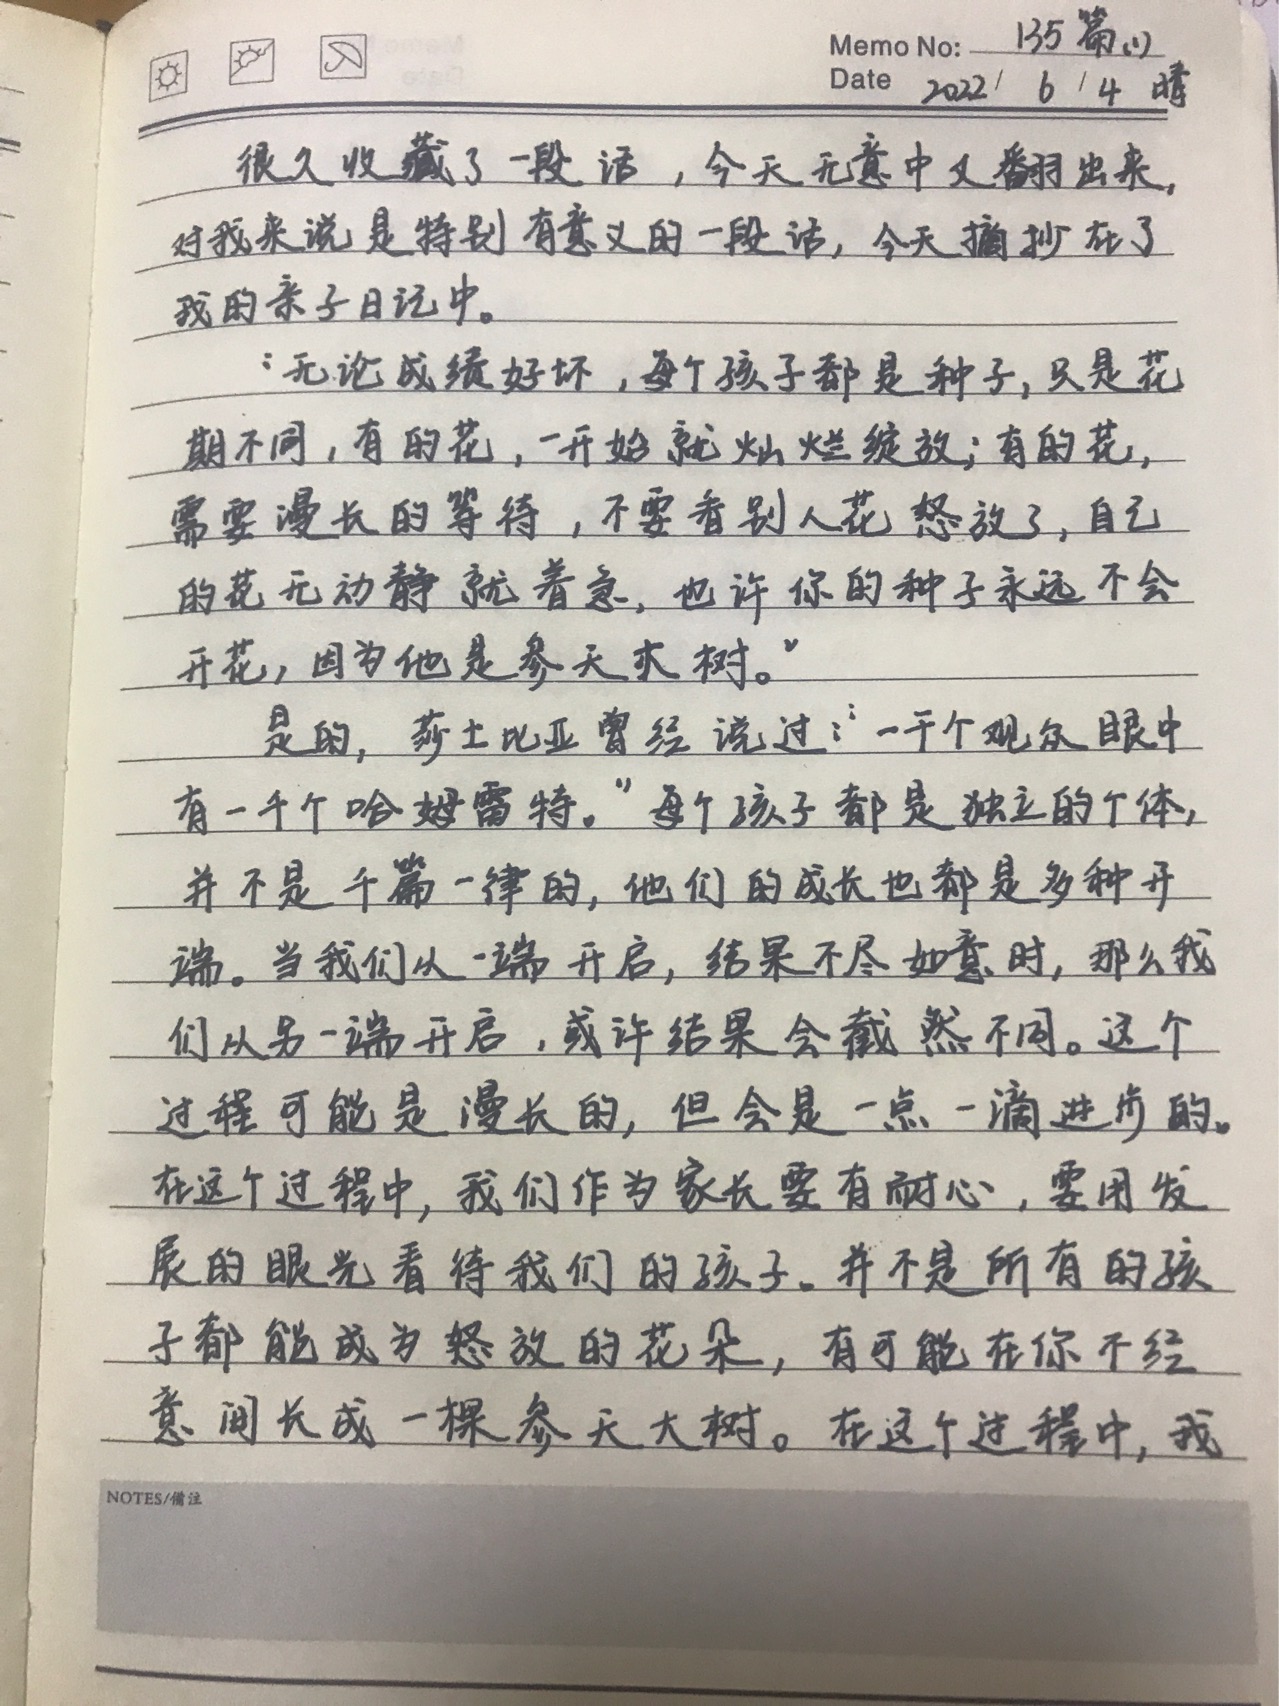 Memo No: 135篇(1)
Date 2022/ 6 / 4 晴
很久收藏了一段话，今天无意中又翻出来，
对我来说是特别有意义的一段话，今天摘抄在了
我的亲子日记中。
“无论成绩好坏，每个孩子都是种子，只是花
期不同，有的花，一开始就灿烂绽放；有的花，
需要漫长的等待，不要看别人花怒放了，自己
的花无动静就着急，也许你的种子永远不会
开花，因为他是参天大树。”
是的，莎士比亚曾经说过：“一千个观众眼中
有一千个哈姆雷特。”每个孩子都是独立的个体，
并不是千篇一律的，他们的成长也都是多种开
端。当我们从一端开启，结果不尽如意时，那么我
们从另一端开启，或许结果会截然不同。这个
过程可能是漫长的，但会是一点一滴进步的。
在这个过程中，我们作为家长要有耐心，要用发
展的眼光看待我们的孩子。并不是所有的孩
子都能成为怒放的花朵，有可能在你不经
意间长成一棵参天大树。在这个过程中，我
NOTES/備注